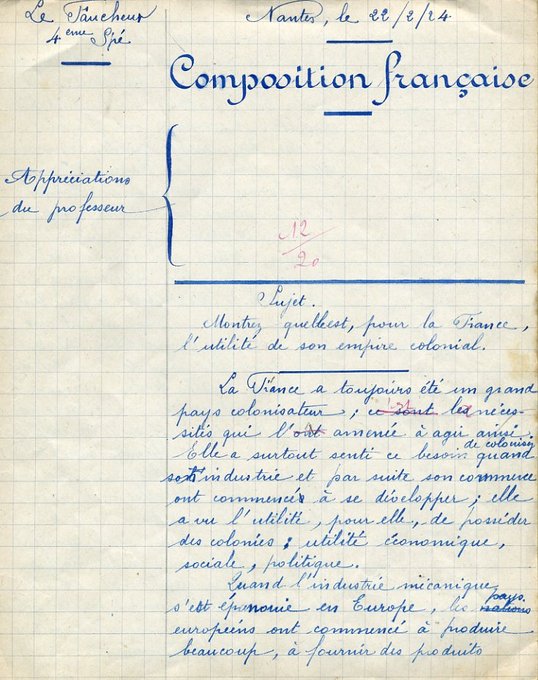 Le Faucheur
4ème Spé
Nantes, le 22/2/24
Composition française
Appréciations
du professeur
12/20
Sujet.
Montrez quelle est, pour la France,
l'utilité de son empire colonial.
La France a toujours été un grand
pays colonisateur ; ce sont les néces-
sités qui l'ont amenée à agir ainsi.
Elle a surtout senti ce besoin de coloniser quand
son industrie et par suite son commerce
ont commencé à se développer ; elle
a vu l'utilité, pour elle, de posséder
des colonies ; utilité économique,
sociale, politique.
Quand l'industrie mécanique
s'est épanouie en Europe, les nations pays
européens ont commencé à produire
beaucoup, à fournir des produits